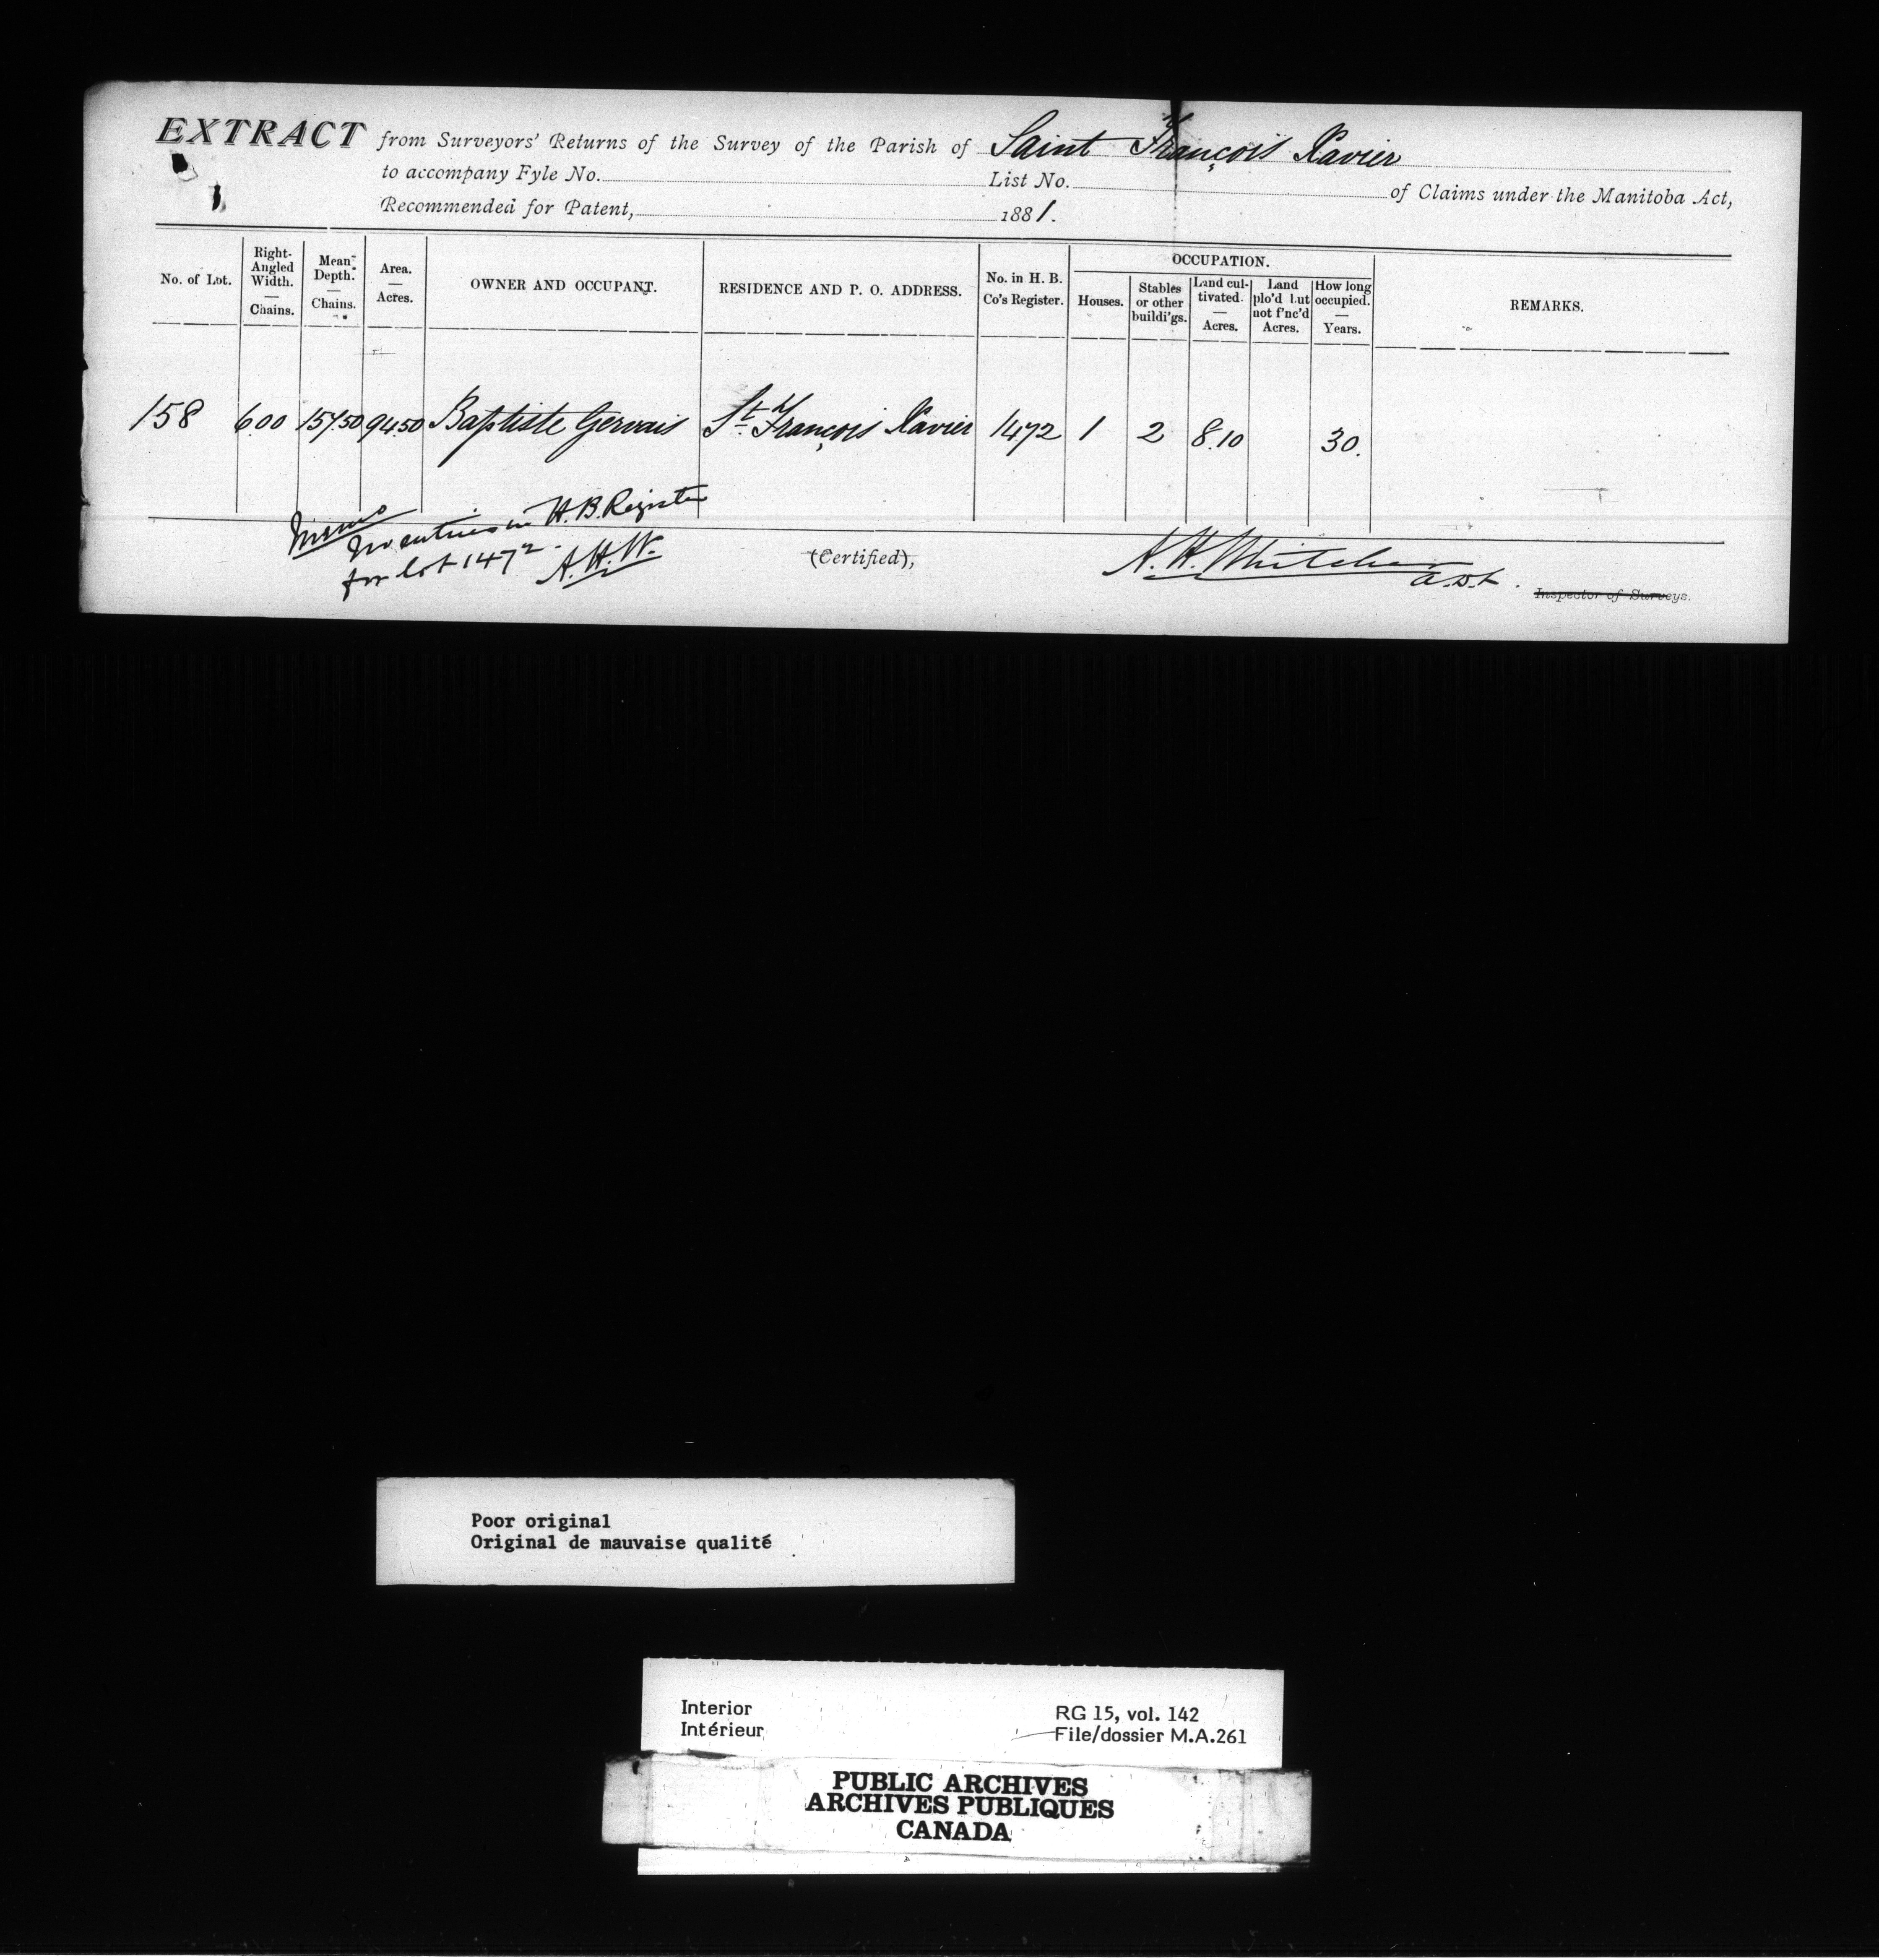 EXTRACT from Surveyors' Returns of the Survey of the Parish of Saint François Xavier
to accompany Fyle No. List No. of Claims under the Manitoba Act,
Recommended for Patent, 1881.
No. of Lot.
Right-Angled Width. — Chains.
Mean Depth. — Chains.
Area. — Acres.
OWNER AND OCCUPANT.
RESIDENCE AND P. O. ADDRESS.
No. in H. B. Co's Register.
OCCUPATION.
Houses.
Stables or other buildi'gs.
Land cultivated. — Acres.
Land plo'd but not f'nc'd Acres.
How long occupied. — Years.
REMARKS.
158 6.00 157.50 94.50 Baptiste Gervais St. François Xavier 1472 1 2 8.10 30.
Memo
No entries in H. B. Register
for lot 1472.
A.H.W.
(Certified),
A. H. Whitcher
Inspector of Surveys.
Poor original
Original de mauvaise qualité
Interior
Intérieur
RG 15, vol. 142
File/dossier M.A.261
PUBLIC ARCHIVES
ARCHIVES PUBLIQUES
CANADA